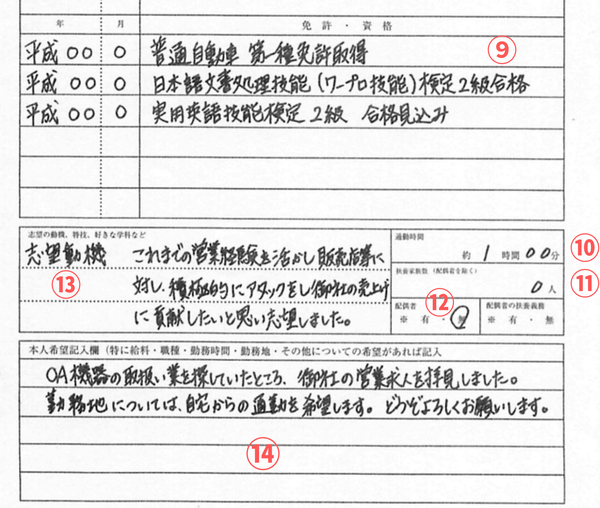 年 月 免許・資格
平成 〇〇 〇 普通自動車 第一種免許取得 ⑨
平成 〇〇 〇 日本語文書処理技能(ワープロ技能)検定2級合格
平成 〇〇 〇 実用英語技能検定 2級 合格見込み
志望の動機、特技、好きな学科など
志望動機 これまでの営業経験を活かし販売店等に
対し、積極的にアタックをし御社の売上げ
に貢献したいと思い志望しました。
⑬
通勤時間
約 1 時間 00 分 ⑩
扶養家族数(配偶者を除く)
0 人 ⑪
⑫
配偶者 配偶者の扶養義務
※ 有 ・ 無 ※ 有 ・ 無
本人希望記入欄(特に給料・職種・勤務時間・勤務地・その他についての希望があれば記入
OA機器の取扱い業を探していたところ、御社の営業求人を拝見しました。
勤務地については、自宅からの通勤を希望します。どうぞよろしくお願いします。
⑭